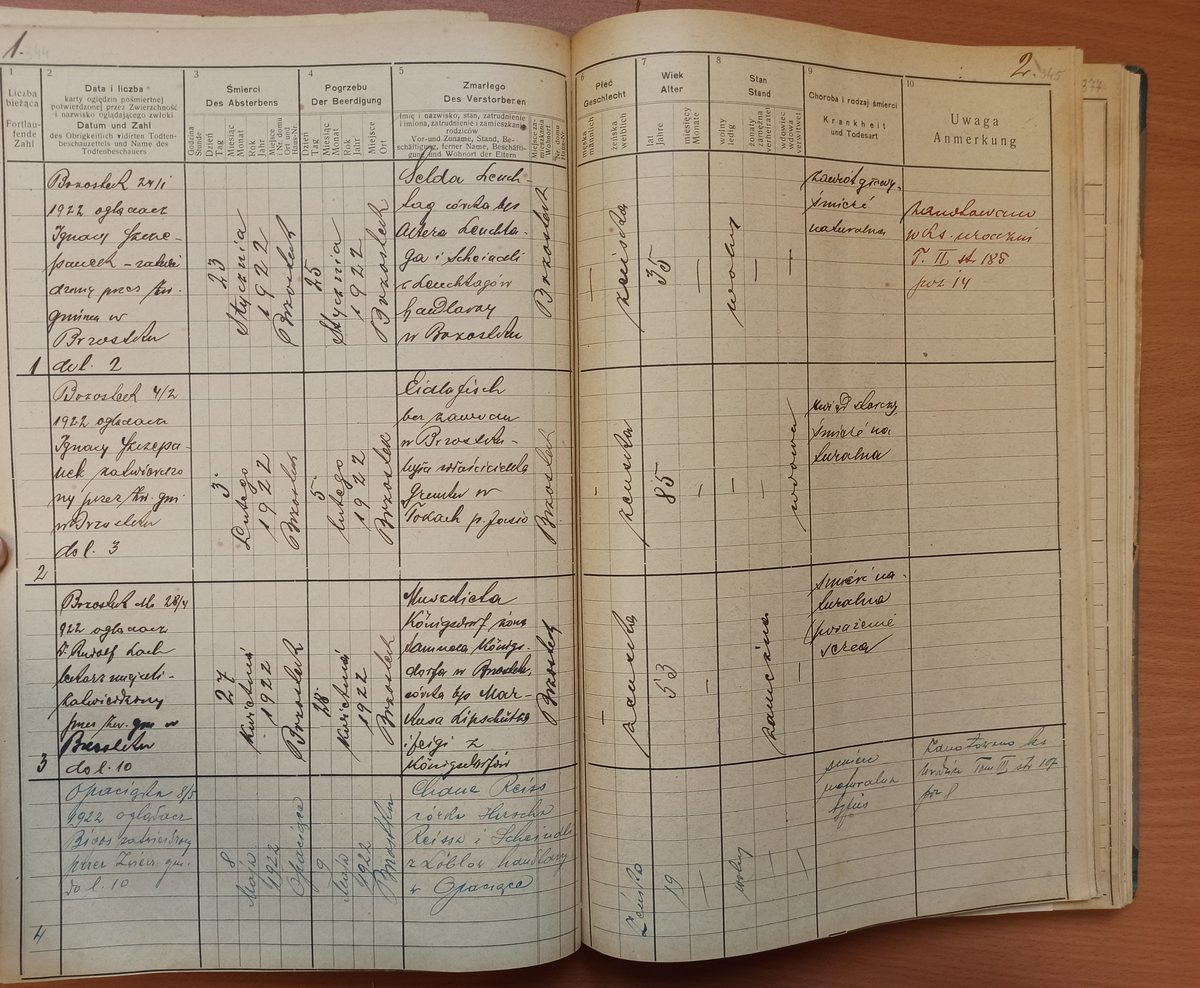 1.
344
1
Liczba
bieżąca
Fortlau-
fende
Zahl
2
Data i liczba
karty oględzin pośmiertnej
potwierdzonej przez Zwierzchność
i nazwisko oglądającego zwłoki
Datum und Zahl
des Obrigkeitlich vidirten Todten-
beschauzettels und Name des
Todtenbeschauers
3
Śmierci
Des Absterbens
Godzina
Stunde
Dzień
Tag
Miesiąc
Monat
Rok
Jahr
4
Pogrzebu
Der Beerdigung
Dzień
Tag
Miesiąc
Monat
Rok
Jahr
Miejsce
Ort
5
Zmarłego
Des Verstorbenen
Imię i nazwisko, stan, zatrudnienie
i imiona, zatrudnienie i zamieszkanie
rodziców
Vor- und Zuname, Stand, Be-
schäftigung, ferner Name, Beschäfti-
gung und Wohnort der Eltern
Brzostek 24/1
1922 oglądacz
Ignacy Szcze-
panek - zatwi
dzony przez Zw.
gminną w
Brzostku
do l. 2
1
23
Stycznia
1922
Brzostek
25
Stycznia
1922
Brzostek
Selda Leuch-
tag córka bp
Altera Leuchta-
ga i Scheindli
z Leuchtagów
handlarzy
w Brzostku
Brzostek
Brzostek 4/2
1922 oglądacz
Ignacy Szczepa-
nek zatwierdzo
ny przez Zw. gmi
w Brzostku
do l. 3
2
3
Lutego
1922
Brzostek
5
lutego
1922
Brzostek
Eidla Fisch
bez zawodu
w Brzostku -
była właścicielka
Gruntu w
Tokach p. Jasło
Brzostek
Brzostek 28/4
922 oglądacz
Dr Rudolf Lach
lekarz miejski -
zatwierdzony
przez Zw. gm w
Brzostku
do l. 10
3
27
Kwietnia
1922
Brzostek
28
Kwietnia
1922
Brzostek
Königsdorf żona
Königs-
dorfa w Brzostku,
córka bp Mar-
kusa Lipschütza
i Feigi z
Königsdorfów
Brzostek
Opacięka 8/5
1922 oglądacz
zatwierdzony
przez Zwierz. gm.
do l. 10
4
8
Maja
1922
Opacięce
9
Maja
1922
Brzostku
Chane Reiss
córka Hirscha
Reissa i Scheindli
z Löblów handlarzy
w Opacięce
2.
345
6
Płeć
Geschlecht
męska
männlich
żeńska
weiblich
7
Wiek
Alter
lat
Jahre
miesięcy
Monate
8
Stan
Stand
wolny
ledig
żonaty
zamężna
verheiratet
wdowiec
wdowa
verwitwet
9
Choroba i rodzaj śmierci
Krankheit
und Todesart
10
Uwaga
Anmerkung
377
—
żeńska
35
—
wolny
—
—
zawrót głowy.
śmierć
naturalna
zanotowano
w ks. urodzin
T. II, str 185
poz 14
—
żeńska
85
—
—
—
wdowa
uwiąd starczy
śmierć na
turalna
—
żeńska
53
—
zamężna
—
śmierć na-
turalna
porażenie
serca
żeńska
19
—
wolny
—
—
śmierć
naturalna
tyfus
Zanotowano ks
urodzin Tom III, str 107
poz 8